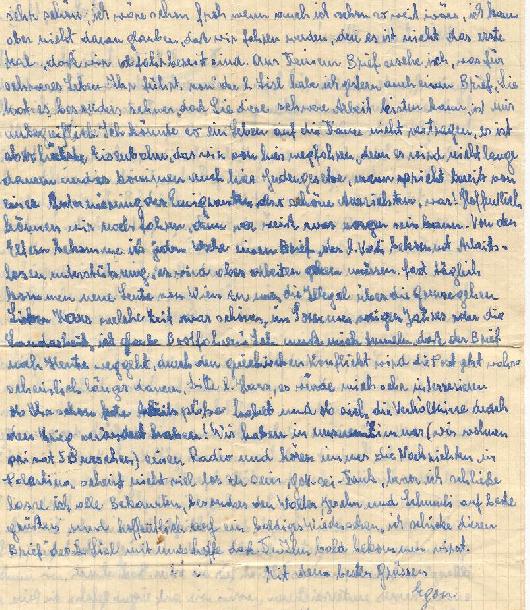 sehr schön, ich wäre schon froh wenn auch ich schon so weit wäre, ich kann
aber nicht daran glauben, das wir fahren werden, den es ist nicht das erste
mal, das wir abfahrtbereit sind. Aus Deinem Brief ersehe ich, was für
schweres Leben Ihr führt, von der l. Lisl habe ich gestern auch einen Brief, Sie
hat es besonders schwer, das Sie diese schwere Arbeit leisten kann, ist mir
Ich könnte so ein Leben auf die Dauer nicht vertragen, es ist
aber höchste Eisenbahn, das wir von hier wegfahren, denn es wird nicht lange
dauern und es kommen auch hier Judengesetze, man spricht bereit von
einer Internierung der Emigranten, schöne Aussichten, was! Hoffentlich
können wir noch fahren, denn wer weist was morgen sein kann. Von den
Eltern bekomme ich jede Woche einen Brief, der l. Vati bekommt Arbeits-
losen unterstützung, es wird aber arbeiten gehen müssen. fast täglich
kommen neue Leute von Wien zu uns, die illegal über die Grenze gehen
Lieber Hans welche Zeit war schöner, im Sommer voriges Jahres oder die
ich glaube Brotfahren! Ich muß mich tummeln, das der Brief
noch Heute weggeht, durch den griechischen Konflickt wird die Post jetzt wahr
scheinlich länger dauern, bitte l. Hans, es würde mich sehr interressieren
ob Ihr schon habet und ob sich die Verhältnisse durch
den Krieg verändert haben! Wir haben in unserem Zimmer (wir wohnen
privat 5 Burschen) einen Radio und hören immer die Nachrichten, in
Palästina scheint nicht viel los zu sein, Gott-sei-Dank, heute ich schließe
lasse ich alle Bekannten, besonders den Walter und Schmuli auf beste
grüßen und hoffentlich auf ein baldiges Wiedersehen, ich schicke diesen
Brief der l. Lisl mit und hoffe das Du ihn bald bekommen wirst.
Mit den besten Grüssen
Egon.